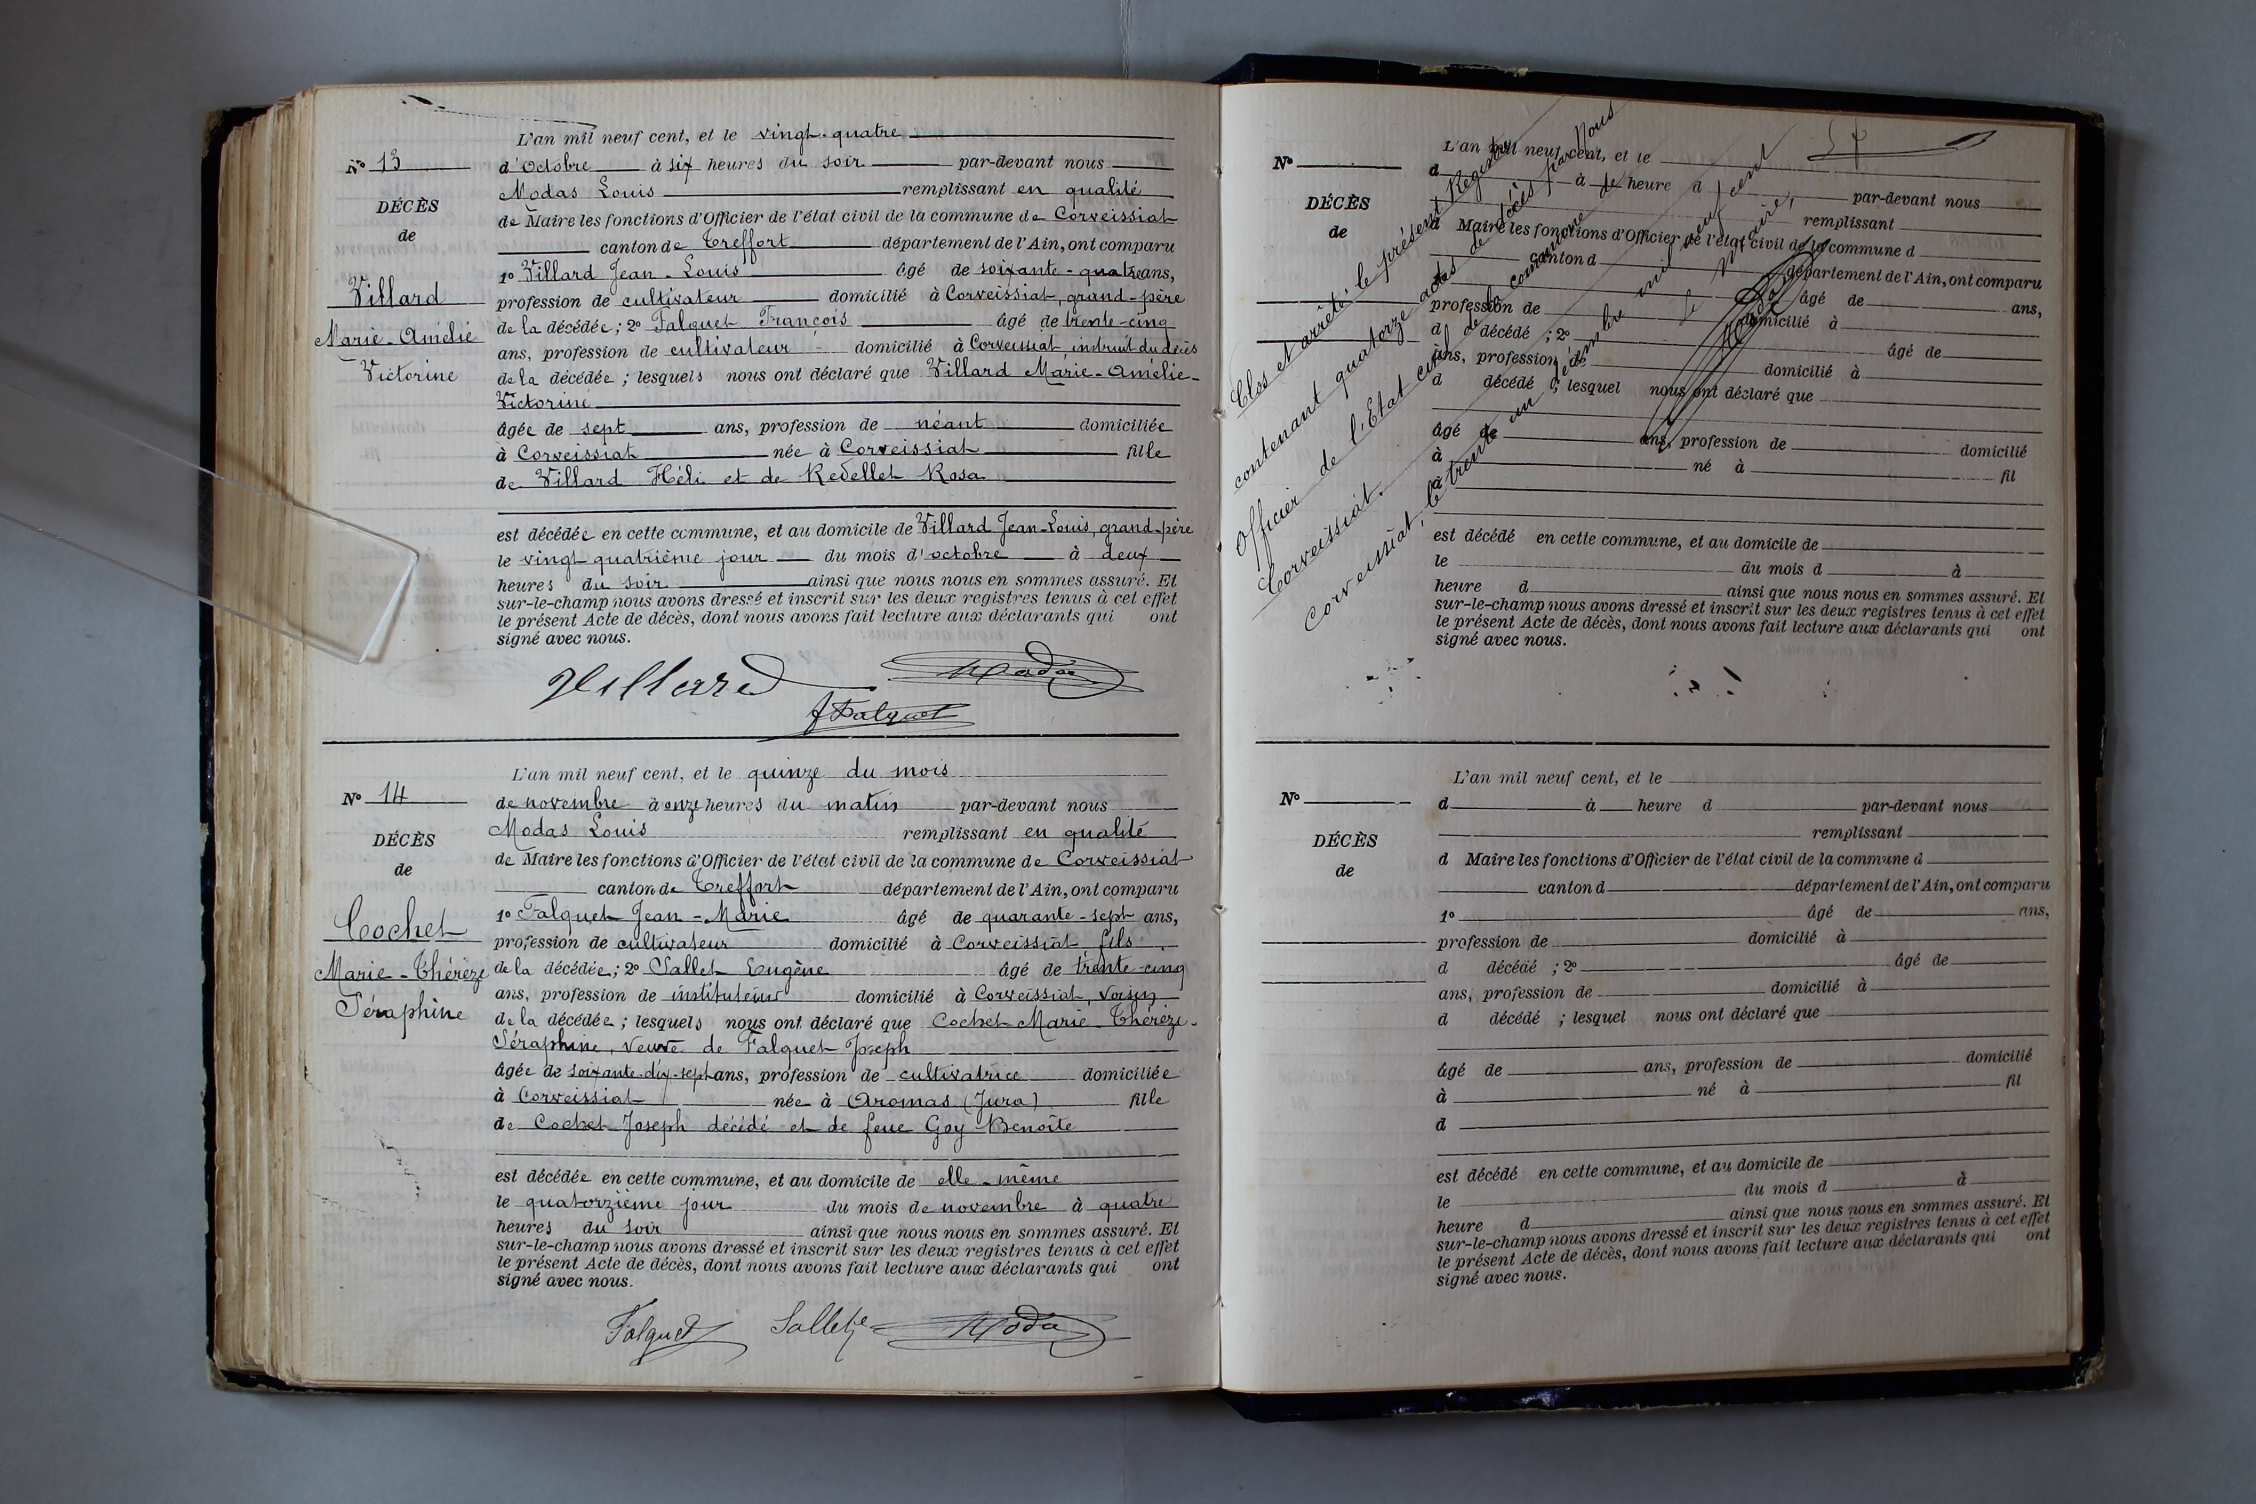 L'an mil neuf cent, et le vingt-quatre
N° 13
d'octobre à six heures du soir par-devant nous
Modas Louis remplissant en qualité
DÉCÈS
de Maire les fonctions d'Officier de l'état civil de la commune de Corveissiat
de
canton de Treffort département de l'Ain, ont comparu
1° Villard Jean-Louis âgé de soixante-quatre ans,
Villard
profession de cultivateur domicilié à Corveissiat, grand-père
de la décédée ; 2° Falquet François âgé de trente-cinq
Marie-Amélie
ans, profession de cultivateur domicilié à Corveissiat instruit du décès
Victorine
de la décédée ; lesquels nous ont déclaré que Villard Marie-Amélie-
Victorine
âgée de sept ans, profession de néant domiciliée
à Corveissiat née à Corveissiat fille
de Villard Héli et de Redellet Rosa
est décédée en cette commune, et au domicile de Villard Jean-Louis, grand-père
le vingt quatrième jour du mois d'octobre à deux
heures du soir ainsi que nous nous en sommes assuré. Et
sur-le-champ nous avons dressé et inscrit sur les deux registres tenus à cet effet
le présent Acte de décès, dont nous avons fait lecture aux déclarants qui ont
signé avec nous.
Villard
Modas
f Falquet
L'an mil neuf cent, et le quinze du mois
N° 14
de novembre à onze heures du matin par-devant nous
Modas Louis remplissant en qualité
DÉCÈS
de Maire les fonctions d'Officier de l'état civil de la commune de Corveissiat
de
canton de Treffort département de l'Ain, ont comparu
1° Falquet Jean-Marie âgé de quarante-sept ans,
Cochet
profession de cultivateur domicilié à Corveissiat fils
Marie-Thérèze
de la décédée ; 2° Sallet Eugène âgé de trente-cinq
ans, profession de instituteur domicilié à Corveissiat, voisin
Séraphine
de la décédée ; lesquels nous ont déclaré que Cochet Marie-Thérèze-
Séraphine, veuve de Falquet Joseph
âgée de soixante-dix-sept ans, profession de cultivatrice domiciliée
à Corveissiat née à Aromas (Jura) fille
de Cochet Joseph décédé et de feue Goy Benoîte
est décédée en cette commune, et au domicile de elle-même
le quatorzième jour du mois de novembre à quatre
heures du soir ainsi que nous nous en sommes assuré. Et
sur-le-champ nous avons dressé et inscrit sur les deux registres tenus à cet effet
le présent Acte de décès, dont nous avons fait lecture aux déclarants qui ont
signé avec nous.
Falquet Sallet Modas
L'an mil neuf cent, et le
N°
d à heure d par-devant nous
remplissant
DÉCÈS
d Maire les fonctions d'Officier de l'état civil de la commune d
de
canton d département de l'Ain, ont comparu
âgé de ans,
profession de domicilié à
d décédé ; 2° âgé de
ans, profession de domicilié à
d décédé ; lesquel nous ont déclaré que
âgé de ans, profession de domicilié
à né à fil
d
est décédé en cette commune, et au domicile de
le du mois d à
heure d ainsi que nous nous en sommes assuré. Et
sur-le-champ nous avons dressé et inscrit sur les deux registres tenus à cet effet
le présent Acte de décès, dont nous avons fait lecture aux déclarants qui ont
signé avec nous.
Clos et arrêté le présent Registre
contenant quatorze actes de décès par Nous
Officier de l'Etat civil de la commune de
Corveissiat.
Corveissiat, le trente un décembre mil neuf cent
le Maire,
Modas
L'an mil neuf cent, et le
N°
d à heure d par-devant nous
remplissant
DÉCÈS
d Maire les fonctions d'Officier de l'état civil de la commune d
de
canton d département de l'Ain, ont comparu
1° âgé de ans,
profession de domicilié à
d décédé ; 2° âgé de
ans, profession de domicilié à
d décédé ; lesquel nous ont déclaré que
âgé de ans, profession de domicilié
à né à fil
d
est décédé en cette commune, et au domicile de
le du mois d à
heure d ainsi que nous nous en sommes assuré. Et
sur-le-champ nous avons dressé et inscrit sur les deux registres tenus à cet effet
le présent Acte de décès, dont nous avons fait lecture aux déclarants qui ont
signé avec nous.